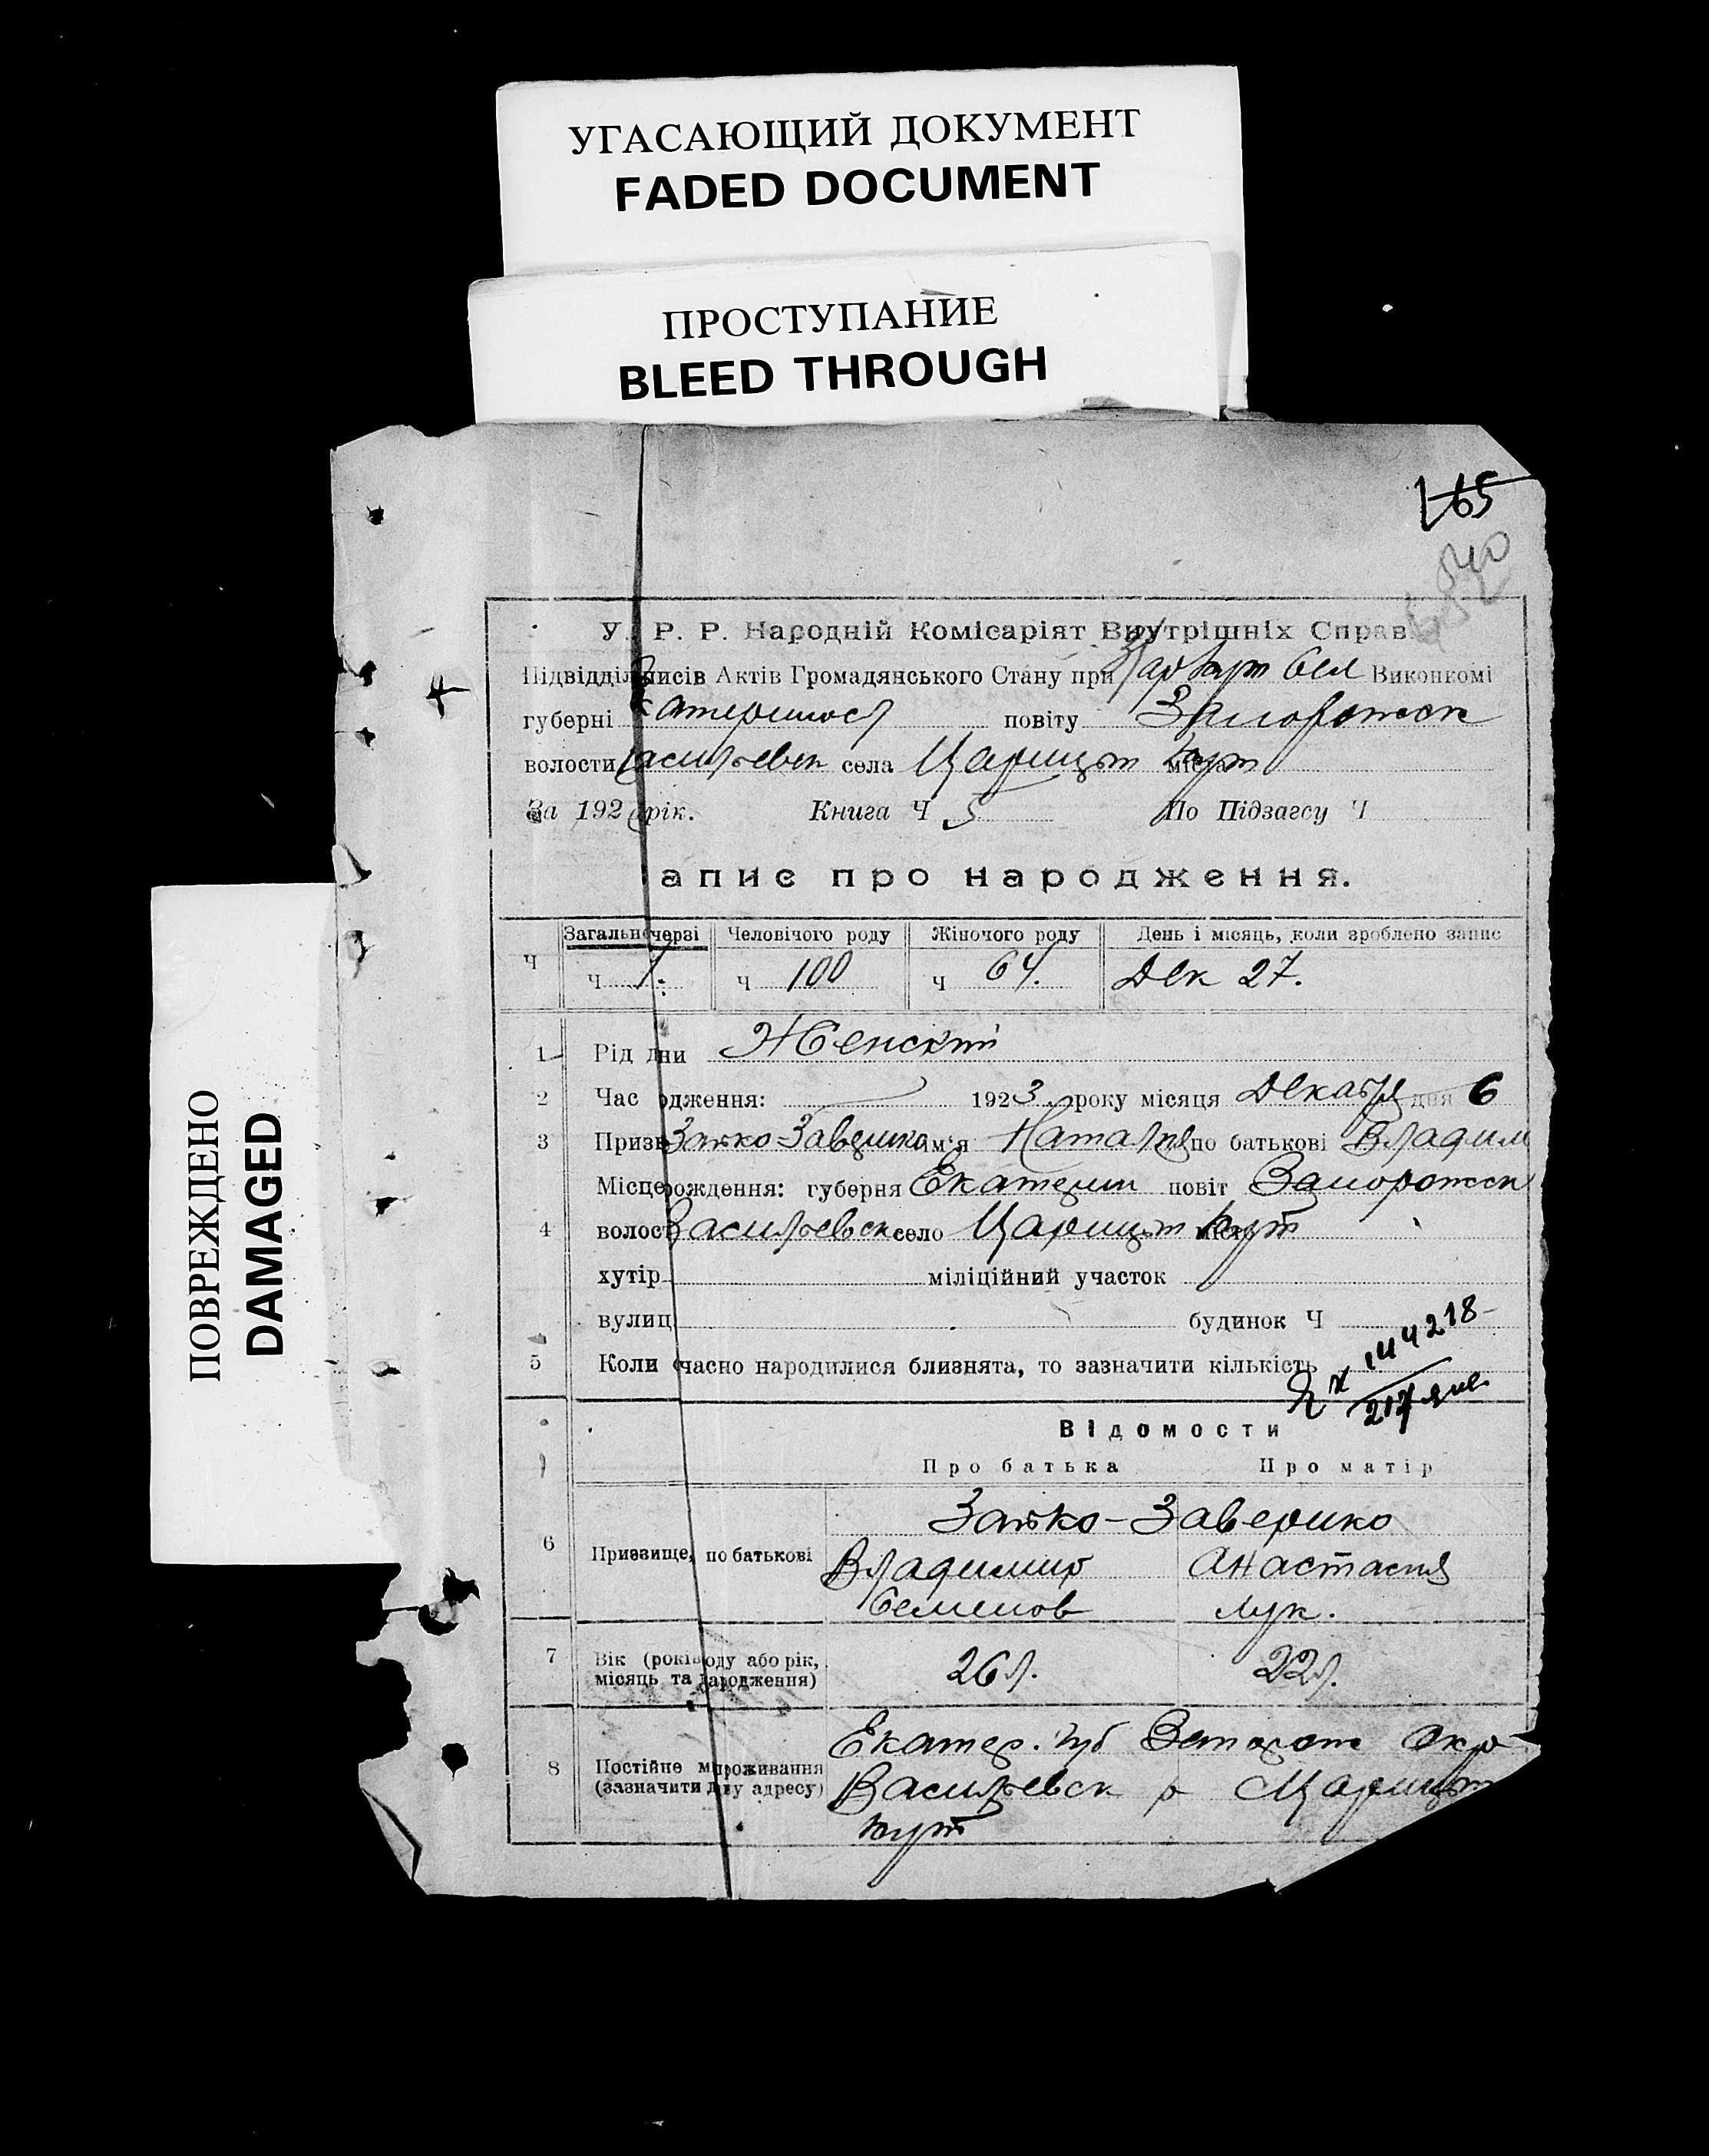 УГАСАЮЩИЙ ДОКУМЕНТ
FADED DOCUMENT
ПРОСТУПАНИЕ
BLEED THROUGH
ПОВРЕЖДЕНО
DAMAGED
165
У. Р. Р. Народній Комісаріят Внутрішніх Справ
Підвідділ писів Актів Громадянського Стану при Виконкомі
губерні Катеринос повіту Запорожск
волости Васильевск села Царицын Кут міста
За 192 рік. Книга Ч 5 По Підзагсу Ч
апис про народження.
Ч Загальн черзі Человічого роду Жіночого роду День і місяць, коли зроблено запис
Ч 1 Ч 100 Ч 64. Дек 27.
1 Рід д ни Женский
2 Час одження: 1923 року місяця Декабря дня 6
3 Призв Заико-Заверико ім'я Наталия по батькові Владим
Місце рождення: губерня Екатерин повіт Запорожск
4 волос Васильевск село Царицын Кут місто
хутір міліційний участок
вулиц будинок Ч
5 Коли часно народилися близнята, то зазначити кількість
144218-
217
Відомости
Про батька Про матір
Заико-Заверико
6 Призвище, по батькові Владимир Анастасия
Семенов Лук.
7 Вік (років оду або рік, місяць та народження) 26 л. 22 л.
8 Постійне м проживання (зазначити д ну адресу) Екатер. губ Запорож окр
Васильевск р Царицын
Кут